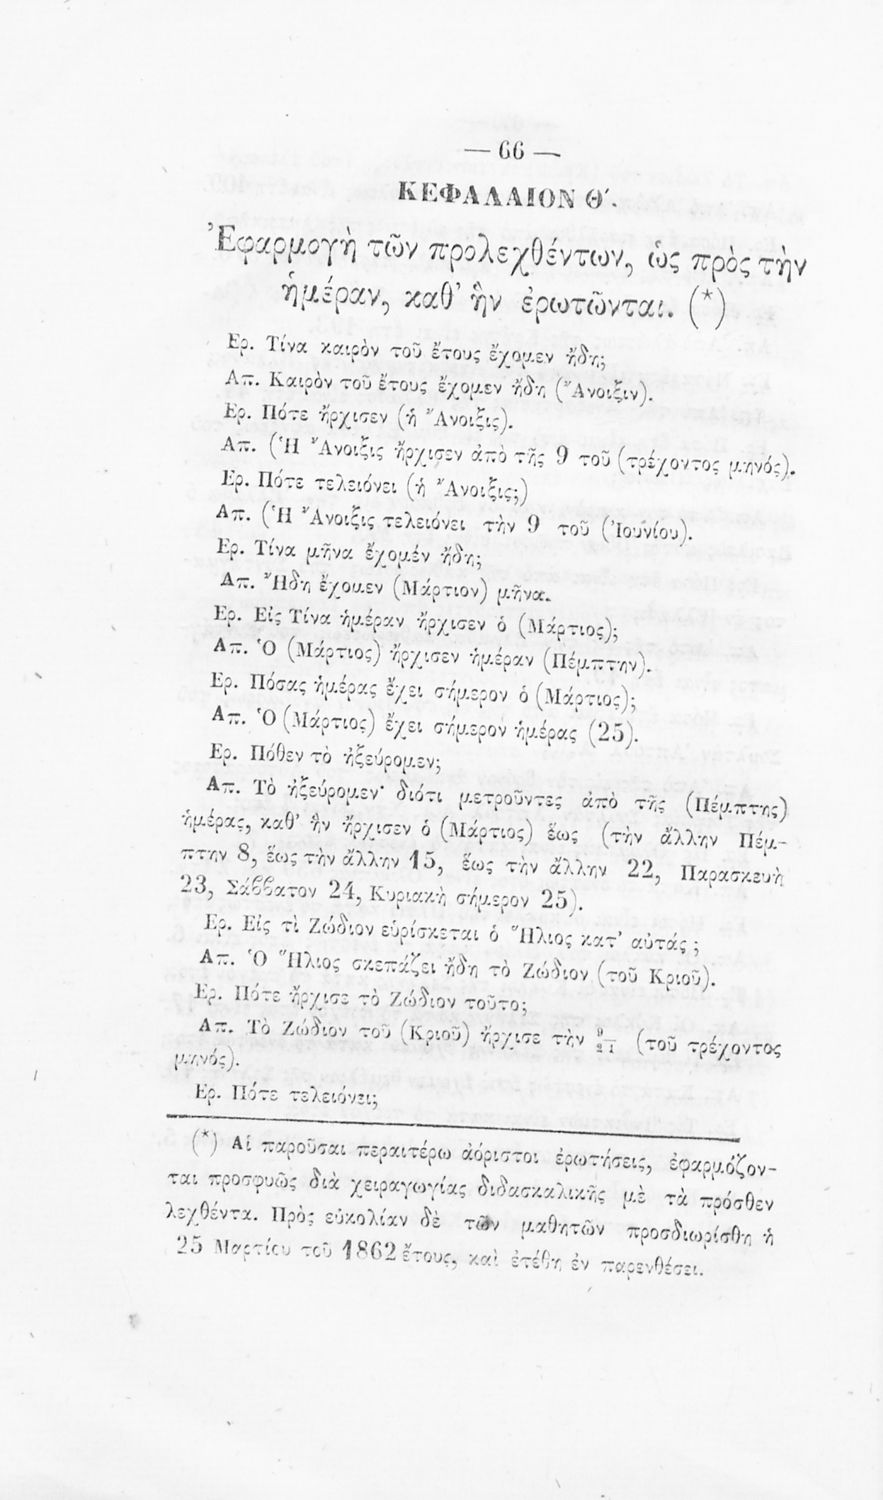 — 66 —
ΚΕΦΑΛΑΙΟΝ Θ΄.
Ἐφαρμογὴ τῶν προλεχθέντων, ὡς πρὸς τὴν
ἡμέραν, καθ' ἣν ἐρωτῶνται. (*)
Ερ. Τίνα καιρὸν τοῦ ἔτους ἔχομεν ἤδη;
Απ. Καιρὸν τοῦ ἔτους ἔχομεν ἤδη (Ἄνοιξιν).
Ερ. Πότε ἤρχισεν (ἡ Ἄνοιξις).
Απ. (Ἡ Ἄνοιξις ἤρχισεν ἀπὸ τῆς 9 τοῦ (τρέχοντος μηνός).
Ερ. Πότε τελειόνει (ἡ Ἄνοιξις;)
Απ. (Ἡ Ἄνοιξις τελειόνει τὴν 9 τοῦ (Ἰουνίου).
Ερ. Τίνα μῆνα ἔχομέν ἤδη;
Απ. Ἤδη ἔχομεν (Μάρτιον) μῆνα.
Ερ. Εἰς Τίνα ἡμέραν ἤρχισεν ὁ (Μάρτιος);
Απ. Ὁ (Μάρτιος) ἤρχισεν ἡμέραν (Πέμπτην).
Ερ. Πόσας ἡμέρας ἔχει σήμερον ὁ (Μάρτιος);
Απ. Ὁ (Μάρτιος) ἔχει σήμερον ἡμέρας (25).
Ερ. Πόθεν τὸ ἠξεύρομεν;
Απ. Τὸ ἠξεύρομεν· διότι μετροῦντες ἀπὸ τῆς (Πέμπτης)
ἡμέρας, καθ' ἣν ἤρχισεν ὁ (Μάρτιος) ἕως (τὴν ἄλλην Πέμ-
πτην 8, ἕως τὴν ἄλλην 15, ἕως τὴν ἄλλην 22, Παρασκευὴ
23, Σάββατον 24, Κυριακὴ σήμερον 25).
Ερ. Εἰς τὶ Ζώδιον εὑρίσκεται ὁ Ἥλιος κατ' αὐτάς;
Απ. Ὁ Ἥλιος σκεπάζει ἤδη τὸ Ζώδιον (τοῦ Κριοῦ).
Ερ. Πότε ἤρχισε τὸ Ζώδιον τοῦτο;
Απ. Τὸ Ζώδιον τοῦ (Κριοῦ) ἤρχισε τὴν 9/21 (τοῦ τρέχοντος
μηνός).
Ερ. Πότε τελειόνει;
(*) Αἱ παροῦσαι περαιτέρω ἀόριστοι ἐρωτήσεις, ἐφαρμόζον-
ται προσφυῶς διὰ χειραγωγίας διδασκαλικῆς μὲ τὰ πρόσθεν
λεχθέντα. Πρὸς εὐκολίαν δὲ τῶν μαθητῶν προσδιωρίσθη ἡ
25 Μαρτίου τοῦ 1862 ἔτους, καὶ ἐτέθη ἐν παρενθέσει.